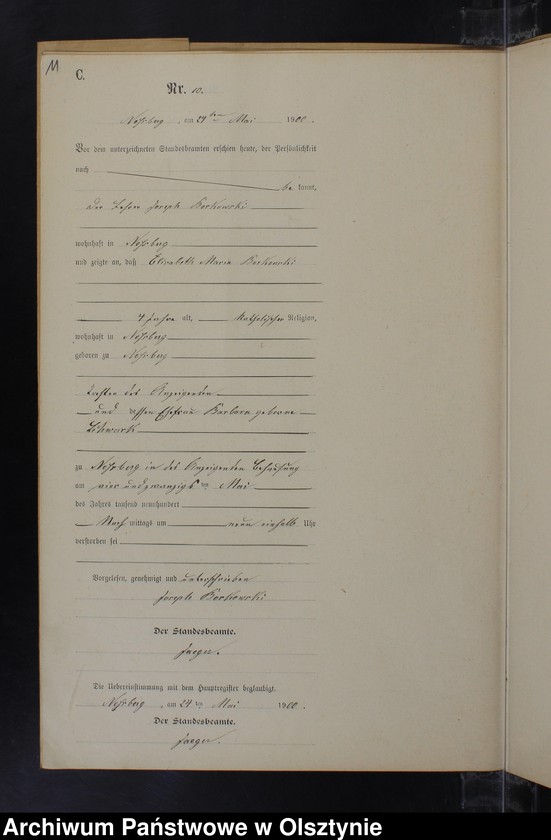 11
C.
Nr. 10.
am 24ten Mai 1900.
Vor dem unterzeichneten Standesbeamten erschien heute, der Persönlichkeit
nach
be kannt,
der Joseph Borkowski
wohnhaft in Noßberg
und zeigte an, daß Elisabeth Maria Borkowski
4 Jahre alt, katholischer Religion,
wohnhaft in Noßberg
geboren zu Noßberg
Tochter des Anzeigenden
und dessen Ehefrau Barbara geborene
zu Noßberg in des Anzeigenden Behausung
am vier und zwanzigsten Mai
des Jahres tausend neunhundert
Nach mittags um neun einhalb Uhr
verstorben sei
Vorgelesen, genehmigt und unterschrieben
Joseph Borkowski
Der Standesbeamte.
Jaeger.
Die Uebereinstimmung mit dem Hauptregister beglaubigt.
Noßberg, am 24ten Mai 1900.
Der Standesbeamte.
Jaeger.
Archiwum Państwowe w Olsztynie